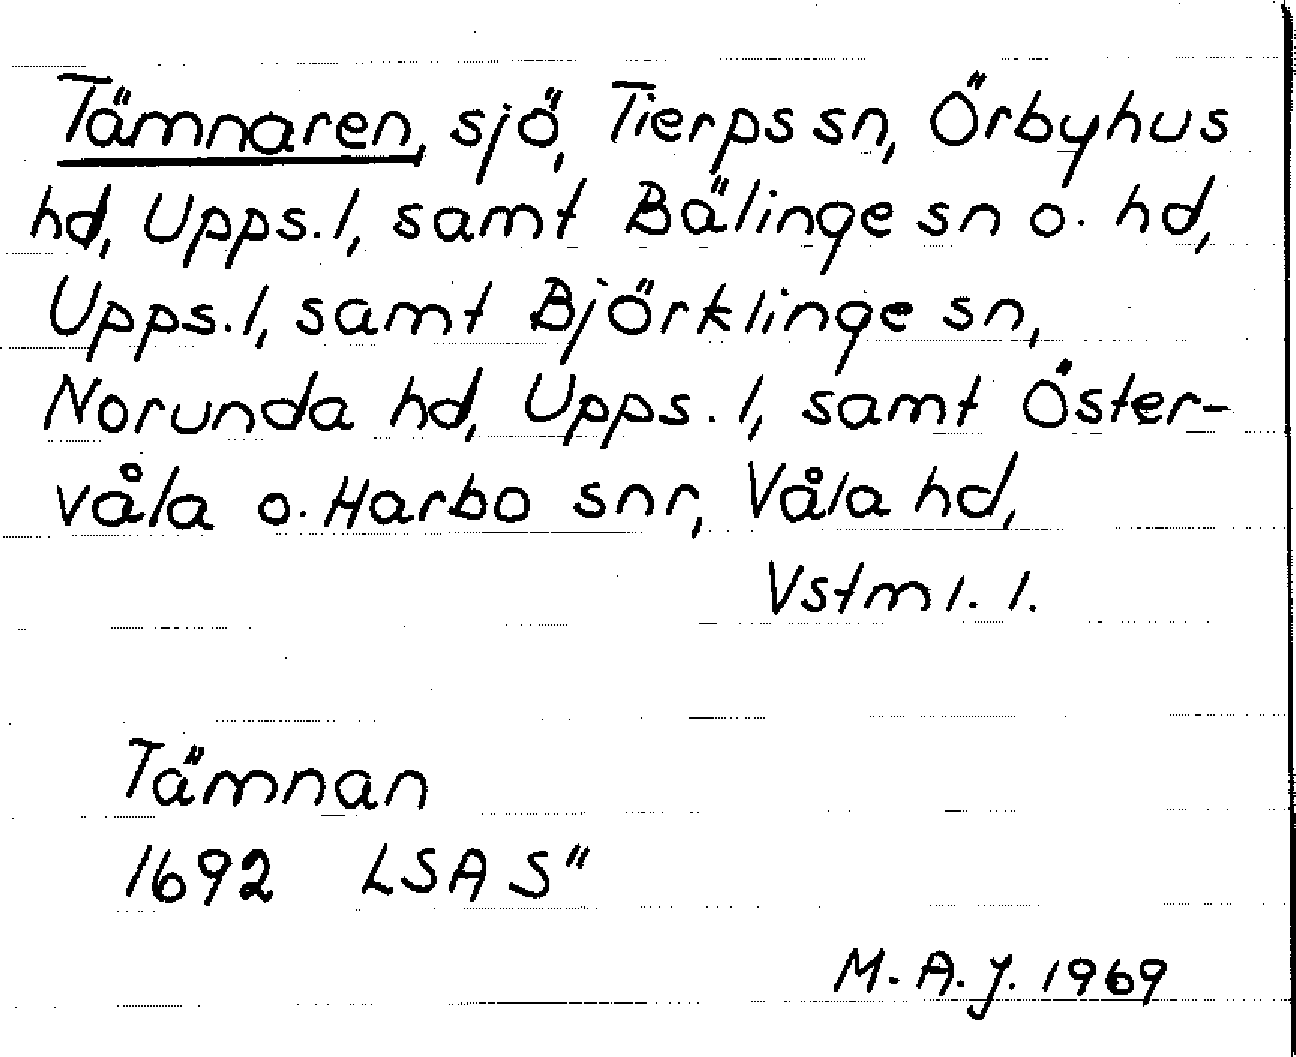 Tämnaren, sjö, Tierps sn, Örbyhus
hd, Upps. l, samt Bälinge sn o. hd,
Upps. l, samt Björklinge sn,
Norunda hd, Upps. l, samt Öster-
våla o. Harbo snr, Våla hd,
Vstml. l.
Tämnan
1692 LSA S"
M. A. J. 1969